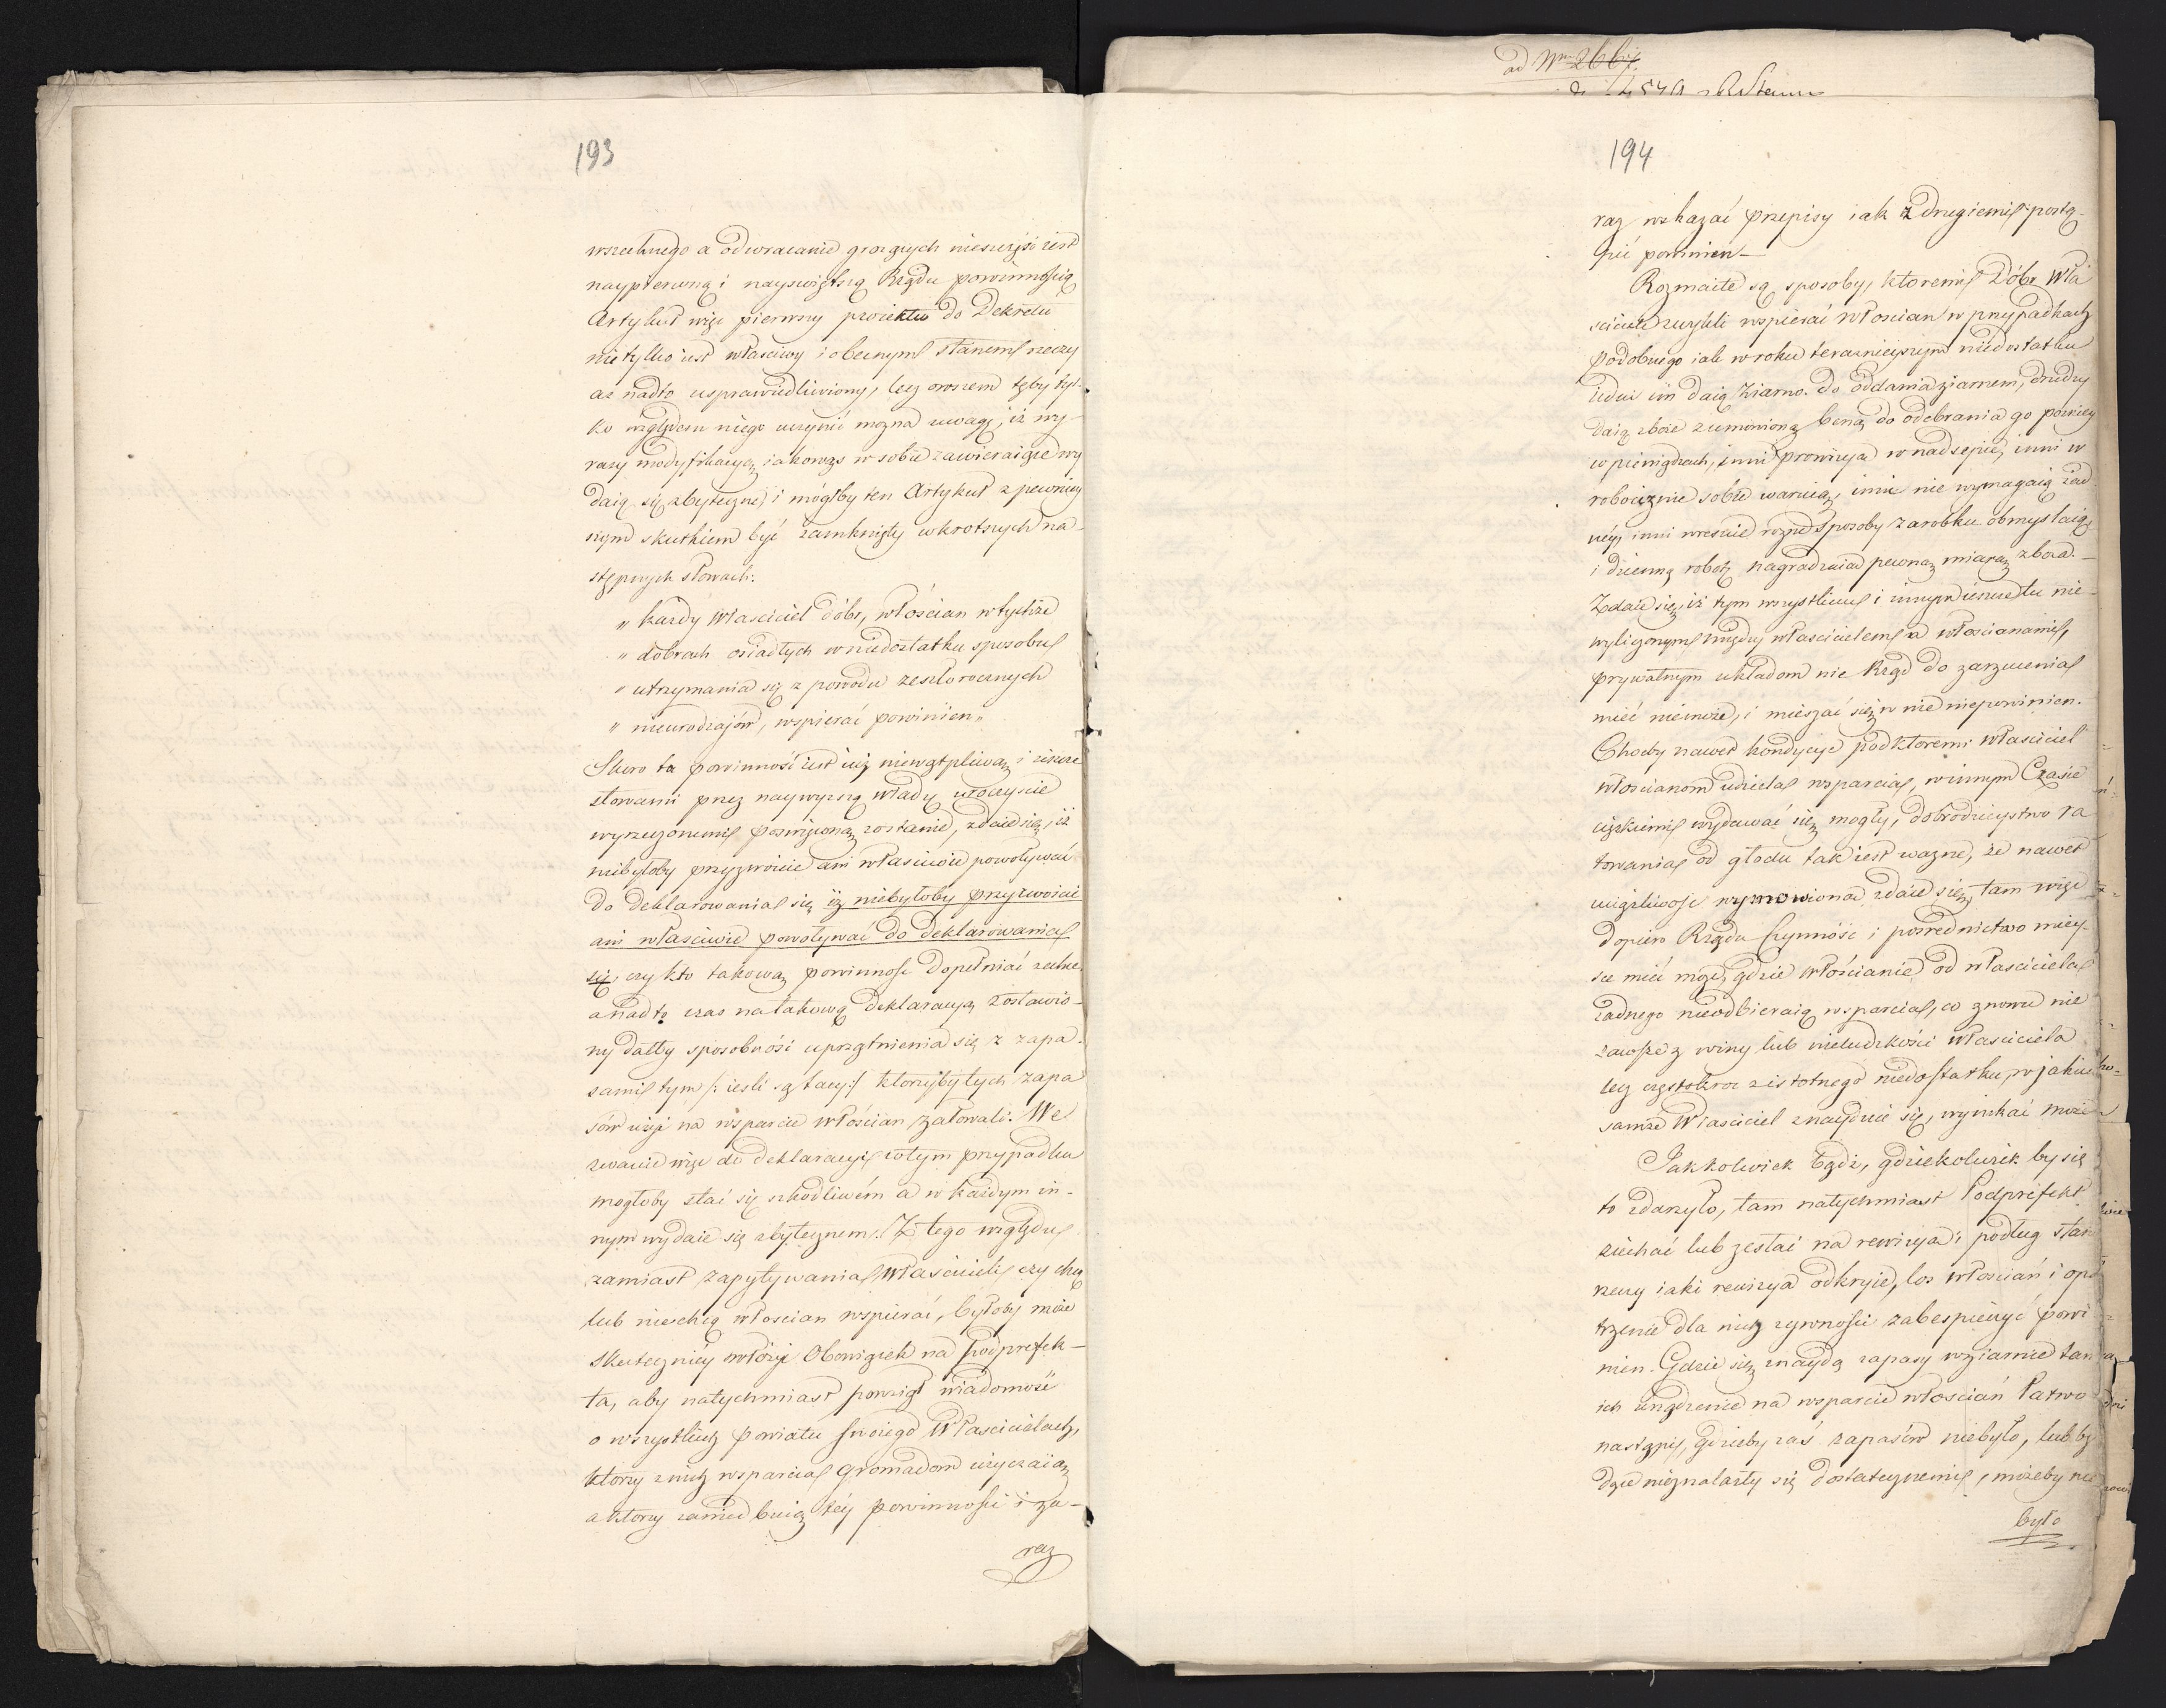 193
wszechnego a odwracanie grożących nieszczęść iest
naypierwszą i nayświętszą Rządu powinnością
Artykuł więc pierwszy proiektu do Dekretu
nietylko iest właściwy i obecnym stanem rzeczy
aż nadto usprawiedliwiony, lecz owszem tęby tyl-
ko względem niego uczynić można uwagę, iż wy-
razy modyfikacyą iakowąs w sobie zawieraiące wy
daią się zbyteczne, i mógłby ten Artykuł z pewniey
szym skutkiem być zamknięty w krotszych na-
stępnych słowach:
„ każdy Właściciel dóbr, włościan w tychże
„ dobrach osiadłych w niedostatku sposobu
„ utrzymania się z powodu zeszłorocznych
„ nieurodzajów, wspierać powinien„
Skoro ta powinność iest iuż niewątpliwą, i ieszcze
słowami przez naywyższą władzę uroczyście
wyrzeczonemi poswięconą zostanie, zdaie się, iż
niebyłoby przyzwoicie ani właściwie powoływać
do deklarowania się iż niebyłoby przyzwoicie
ani właściwie powoływać do deklarowania
się, czy kto takową powinność dopełniać zechce
a nadto czas na takową deklaracyą zostawio-
ny dałby sposobność uprzątnienia się z zapa-
sami tym /: iesli są tacy :/ którzyby tych zapa
sów użyć na wsparcie włościan żałowali. We
zwanie więc do deklaracyi w tym przypadku
mogłoby stać się szkodliwém a w każdym in-
nym wydaie się zbytecznem. Z tego względu
zamiast zapytywania Właścicieli czy chcą
lub niechcą włościan wspierać, byłoby może
skuteczniey włożyć Obowiązek na Podprefek-
ta, aby natychmiast powziął wiadomość
o wszystkich powiatu swoiego Właścicielach,
którzy z nich wsparcia gromadom użyczaią,
a którzy zaniedbuią tey powinności i za-
raz
ad Nrum 266
194
raz wskazać przepisy iak z drugiemi postą-
pić powinien—
Rozmaite są sposoby, ktoremi Dóbr Wła
sciciele zwykli wspierać włościan w przypadkach
podobnego iak w roku teraznieyszym niedostatku
iedni im daią ziarno do oddania ziarnem, drudzy
daią zboże z umówioną ceną do odebrania go pózniey
w pieniądzach, inni prowizyą w nadsepie, inni w
robociznie sobie waruią, inni nie wymagaią żad
néy, inni wreszcie rożne sposoby zarobku obmyslaią
i dzienną robotę nagradzaią pewną miarą zboża.—
Zdaie się, iż tym wszystkim i innym ieszcze tu nie-
wyliczonym między właścicielem a włościanami,
prywatnym układom nic Rząd do zarzucenia
mieć niemoże, i mieszać się w nie niepowinien.
Choćby nawet kondycye pod ktoremi właściciel
włościanom udziela wsparcia, w innym Czasie
ciężkiemi wydawać się mogły, dobrodzieystwo ra
towania od głodu tak iest ważne, że nawet
uciążliwość wymowiona zdaie się, tam więc
dopiero Rządu czynność i pośrednictwo miey-
sce mieć może, gdzie włościanie od właściciela
żadnego nieodbieraią wsparcia, co znowu nie
zawsze z winy lub nieludzkości właściciela
lecz częstokroć z istotnego niedostatku, w jakim
samże Właściciel znayduie się, wynikać może
Jakkolwiek bądź, gdziekolwiek by się
to zdarzyło, tam natychmiast Podprefekt
ziechać lub zesłać na rewizyą i podług stan
rzeczy iaki rewizya odkryie, los włościan i opa
trzenie dla nich żywności zabespieczyć powi
nien. Gdzie się znaydą zapasy w ziarnie tam
ich użycie na wsparcie włościan łatwo
nastąpi, gdzieby zaś zapasów niebyło, lub by
dzie nieznalazły się dostatecznemi, możeby nie
było